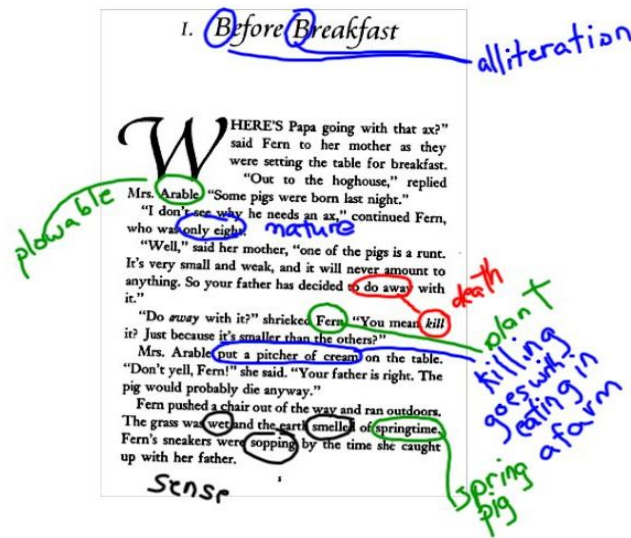 I. Before Breakfast
alliteration
WHERE'S Papa going with that ax?"
said Fern to her mother as they
were setting the table for breakfast.
"Out to the hoghouse," replied
Mrs. Arable. "Some pigs were born last night."
plowable
"I don't see why he needs an ax," continued Fern,
who was only eight.
nature
"Well," said her mother, "one of the pigs is a runt.
It's very small and weak, and it will never amount to
anything. So your father has decided to do away with
it."
death
"Do away with it?" shrieked Fern. "You mean kill
plant
it? Just because it's smaller than the others?"
Mrs. Arable put a pitcher of cream on the table.
"Don't yell, Fern!" she said. "Your father is right. The
pig would probably die anyway."
killing
goes with
eating in
a farm
Fern pushed a chair out of the way and ran outdoors.
The grass was wet and the earth smelled of springtime.
Fern's sneakers were sopping by the time she caught
up with her father.
spring
pig
sense
1